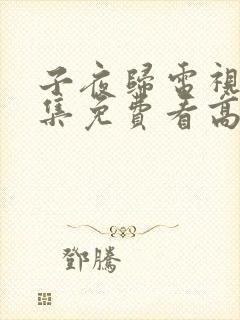 子夜歸電視
集免費看高
鄧騰